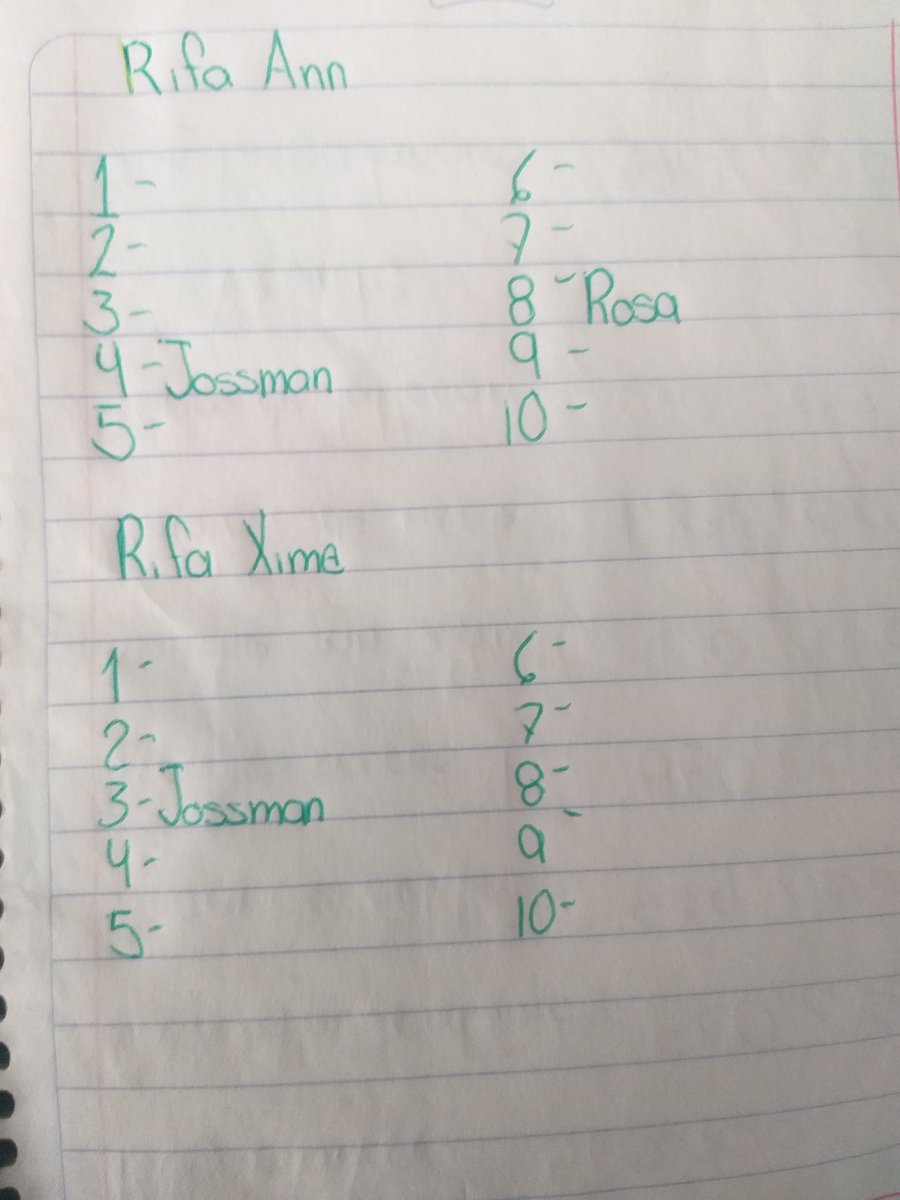 Rifa Ann
1-
2-
3-
4-Jossman
5-
6-
7-
8-Rosa
9-
10-
Rifa Xime
1-
2-
3-Jossman
4-
5-
6-
7-
8-
9-
10-